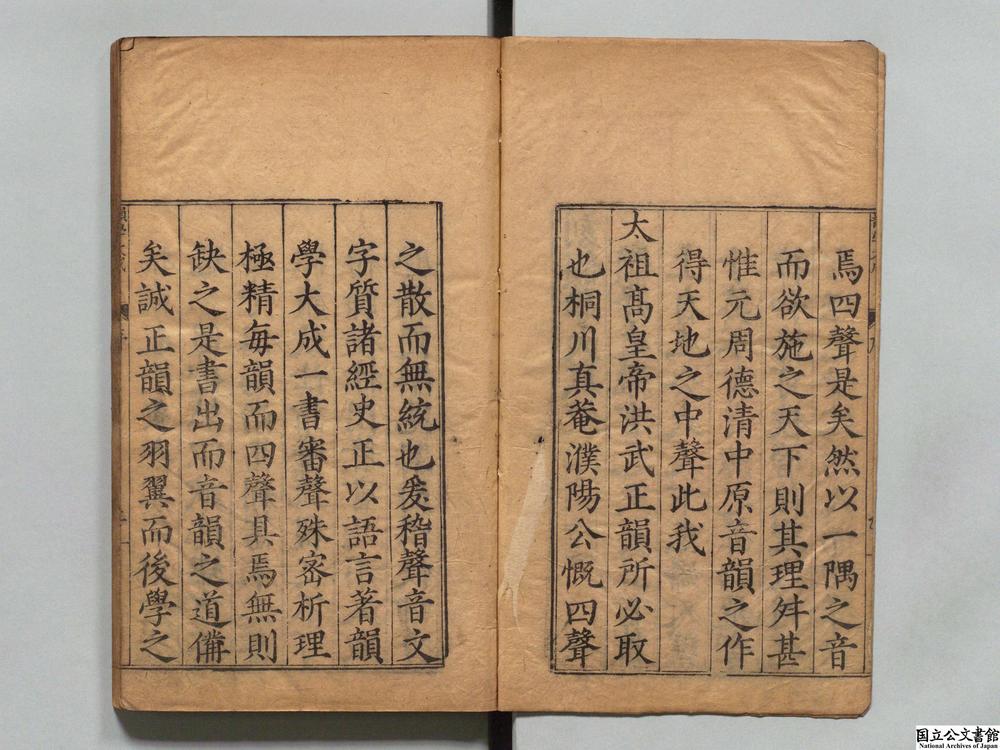 焉四聲是矣然以一隅之音
而欲施之天下則其理舛甚
惟元周德清中原音韻之作
得天地之中聲此我
太祖高皇帝洪武正韻所必取
也桐川真菴濮陽公慨四聲
之散而無統也爰稽聲音文
字質諸經史正以語言著韻
學大成一書審聲殊密析理
極精每韻而四聲具焉無則
缺之是書出而音韻之道備
矣誠正韻之羽翼而後學之
国立公文書館
National Archives of Japan